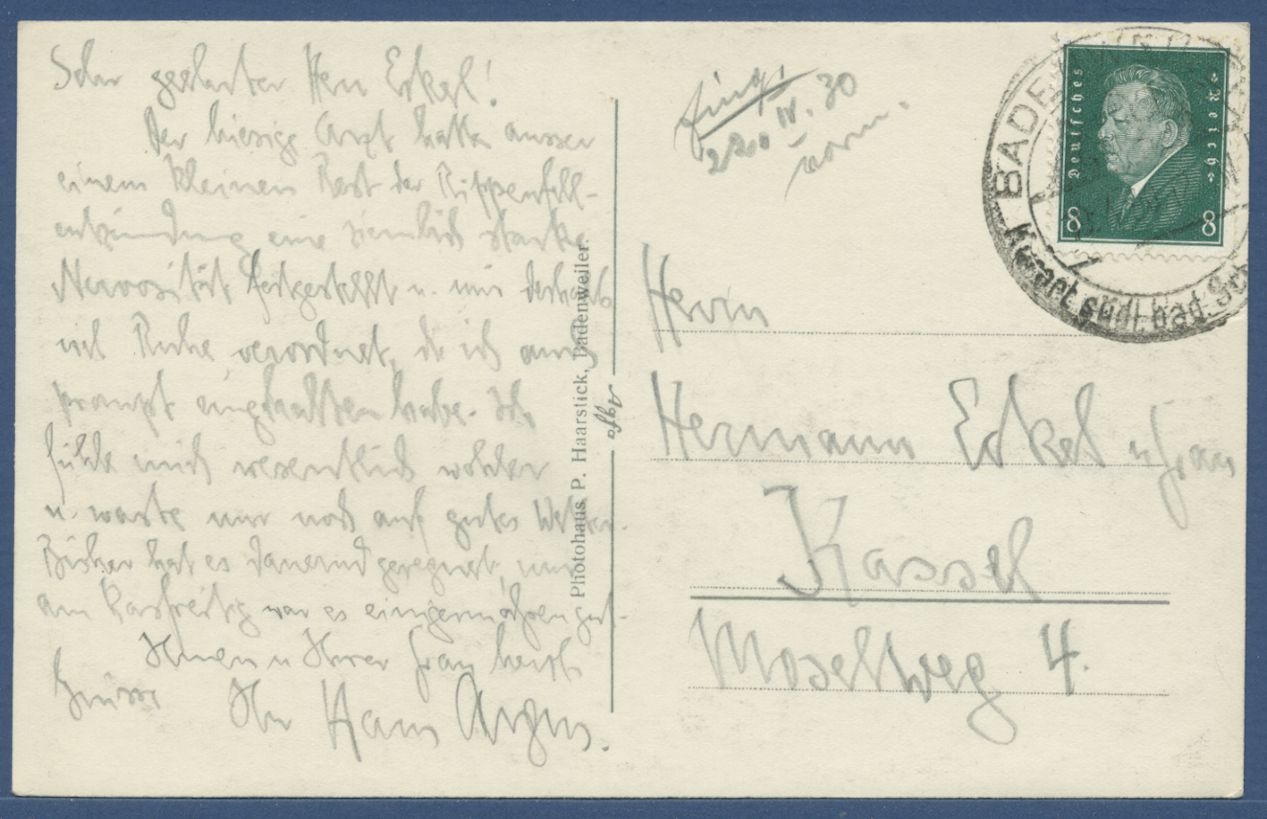 Sehr geehrter Herr Erkel!
Der hiesige Arzt hatte ausser
einem kleinen Rest der Rippenfell-
entzündung eine ziemlich starke
Nervosität festgestellt u. mir deshalb
viel Ruhe verordnet, die ich auch
prompt eingehalten habe. Ich
fühle mich wesentlich wohler
u. warte nur noch auf gutes Wetter.
Bisher hat es dauernd geregnet, nur
am Karfreitag war es einigermaßen gut.
Ihnen u Ihrer Frau herzl.
Grüsse Ihr Hans
Photohaus P. Haarstick, Badenweiler.
Agfa
22. IV. 30
vorm.
Deutsches Reich
8 8
BADENWEILER
Kurort südl. bad. Sch
Herrn
Hermann Erkel u Frau
Kassel
Moselweg 4.